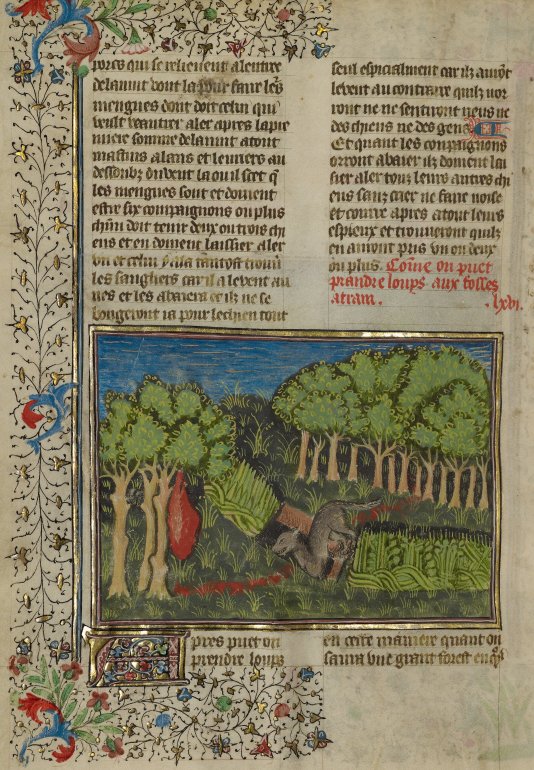 porcs qui se relieuent a lentree
de la nuit dont la pour faire les
mengues dont doit celui qui
veult veautrer aler apres la pre
miere somme de la nuit a tout
mastins alans et leuriers au
dessoubz du vent la ou il scet q
les mengues sont et doiuent
estre six compaignons ou plus
chun doit tenir deux ou trois chi
ens et en doiuent laissier aler
vn et celui
les sangliers car il a le vent au
nes et les abaiera et ilz ne se
bougeront ia pour le chien tout
seul especialment car ilz auront
le vent au contraire quilz nor
ront ne ne sentiront neus ne
des chiens ne des gens
Et quant les compaignons
orront abaier ilz doiuent lai
sier aler touz leurs autres chi
ens sanz crier ne faire noise
et courre apres a tout leurs
espieux et trouueront quilz
en auront pris vn ou deux
ou plus. Comme on puet
prandre loups aux fosses
a tram. lxvi.
Apres puet on
prendre loups
en ceste maniere quant on
saura vne grant forest